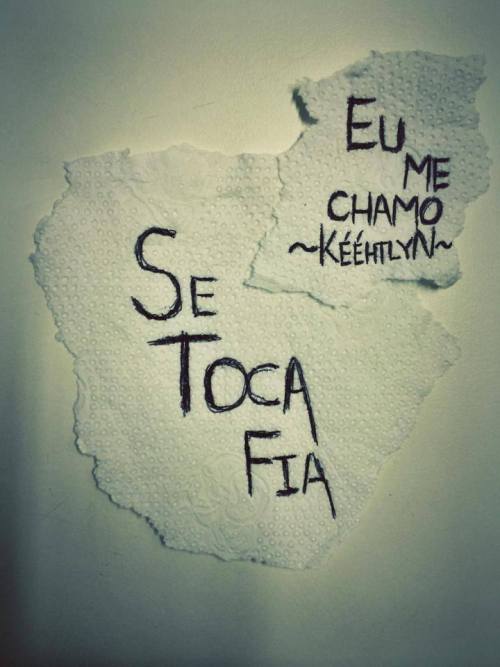 EU
ME
CHAMO
~KÉÉHTLYN~
SE
TOCA
FIA